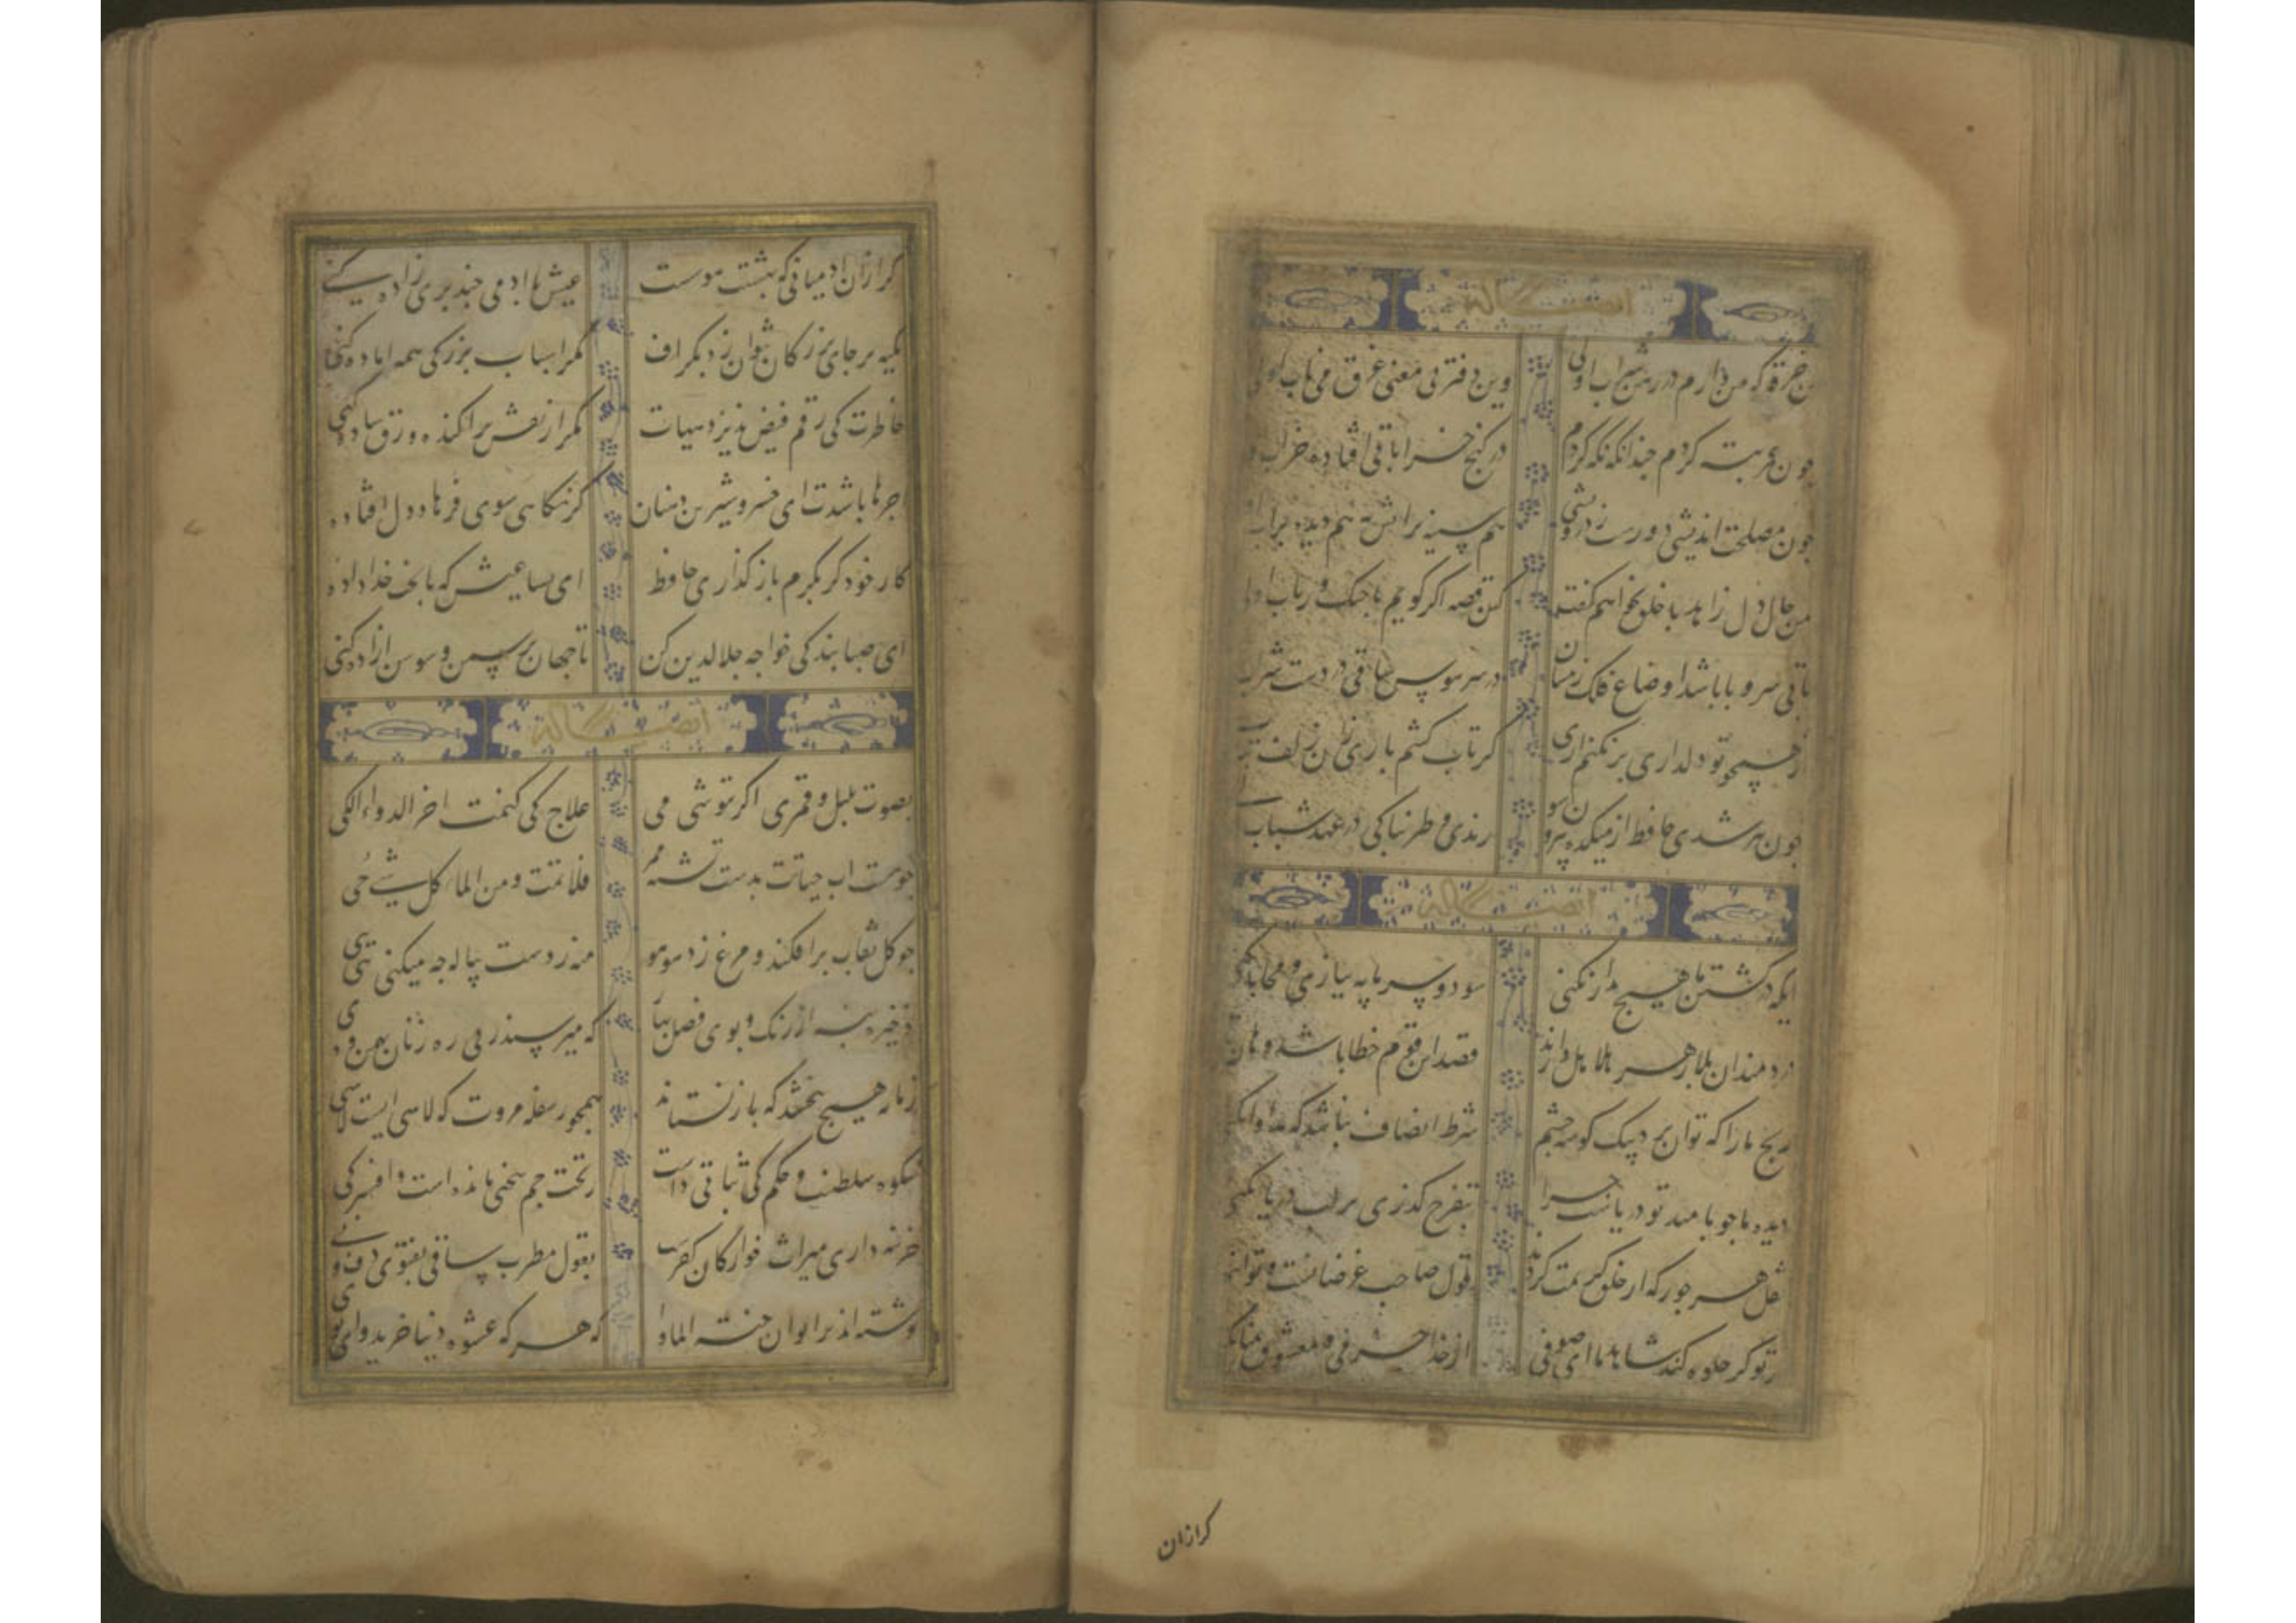 ایضاً له
این خرقه که من دارم در رهن شراب اولی وین دفتر بی معنی غرق می ناب اولی
چون عمر تبه کردم چندانکه نگه کردم در کنج خراباتی افتاده خراب
چون مصلحت اندیشی دورست ز درویشی هم سینه پر آتش به هم دیده پر آب
من حال دل زاهد با خلق نخواهم گفتن کین قصه اگر گویم با چنگ و رباب اولی
تا بی سر و پا باشد اوضاع فلک زینسان در سر هوس ساقی در دست شراب
از همچو تو دلداری بر نکنم آری گر تاب کشم باری زان زلف
چون پیر شدی حافظ از میکده بیرون شو رندی و طربناکی در عهد شباب
ایضاً له
ایکه در کشتن ما هیچ مدارا نکنی سود و سرمایه بسازی و محابا نکنی
دردمندان بلا زهر هلاهل دارند قصد این قوم خطا باشد هان
رنج ما را که توان برد بیک گوشه چشم شرط انصاف نباشد که مداوا نکنی
دیده ما چو بامید تو دریاست چرا بتفرج گذری بر لب دریا نکنی
نقل هر جور که از خلق کریمت کردند قول صاحب غرضانست تو آنها
بر تو گر جلوه کند شاهد ما ای صوفی از خدا جز می و معشوق تمنا نکنی
کر ازان
کر ازان ادمیانی که بهشتت هوست عیش با ادمی چند پری زاده کنی
تکیه بر جای بزرگان نتوان زد بگزاف مگر اسباب بزرگی همه اماده کنی
خاطرت کی رقم فیض پذیرد هیهات مگر از نقش پراکنده ورق ساده کنی
اجرها باشدت ای خسرو شیرین دهنان گر نگاهی سوی فرهاد دل افتاده
کار خود گر بکرم باز گذاری حافظ ای بسا عیش که با بخت خداداده
ای صبا بندگی خواجه جلال الدین کن تا جهان پر سمن و سوسن ازاده کنی
ایضاً له
بصوت بلبل و قمری اگر ننوشی می علاج کی کنمت اخر الدواء الکی
چو هست اب حیاتت بدست تشنه ممیر فلا تمت و من الماء کل شیء حی
چو گل نقاب برافکند و مرغ زد هوهو منه ز دست پیاله چه میکنی هی هی
ذخیره بنه از رنگ و بوی فصل بهار که میرسند ز پی ره زنان بهمن و دی
زمانه هیچ نبخشد که باز نستاند مجو ز سفله مروت که لاشی است لاشی
شکوه سلطنت و حکم کی ثباتی داشت ز تخت جم سخنی مانده است و افسر کی
خزینه داری میراث خوارگان کفرست بقول مطرب ساقی بفتوی دف و نی
نوشته اند بر ایوان جنة الماوا که هر که عشوه دنیا خرید وای بوی